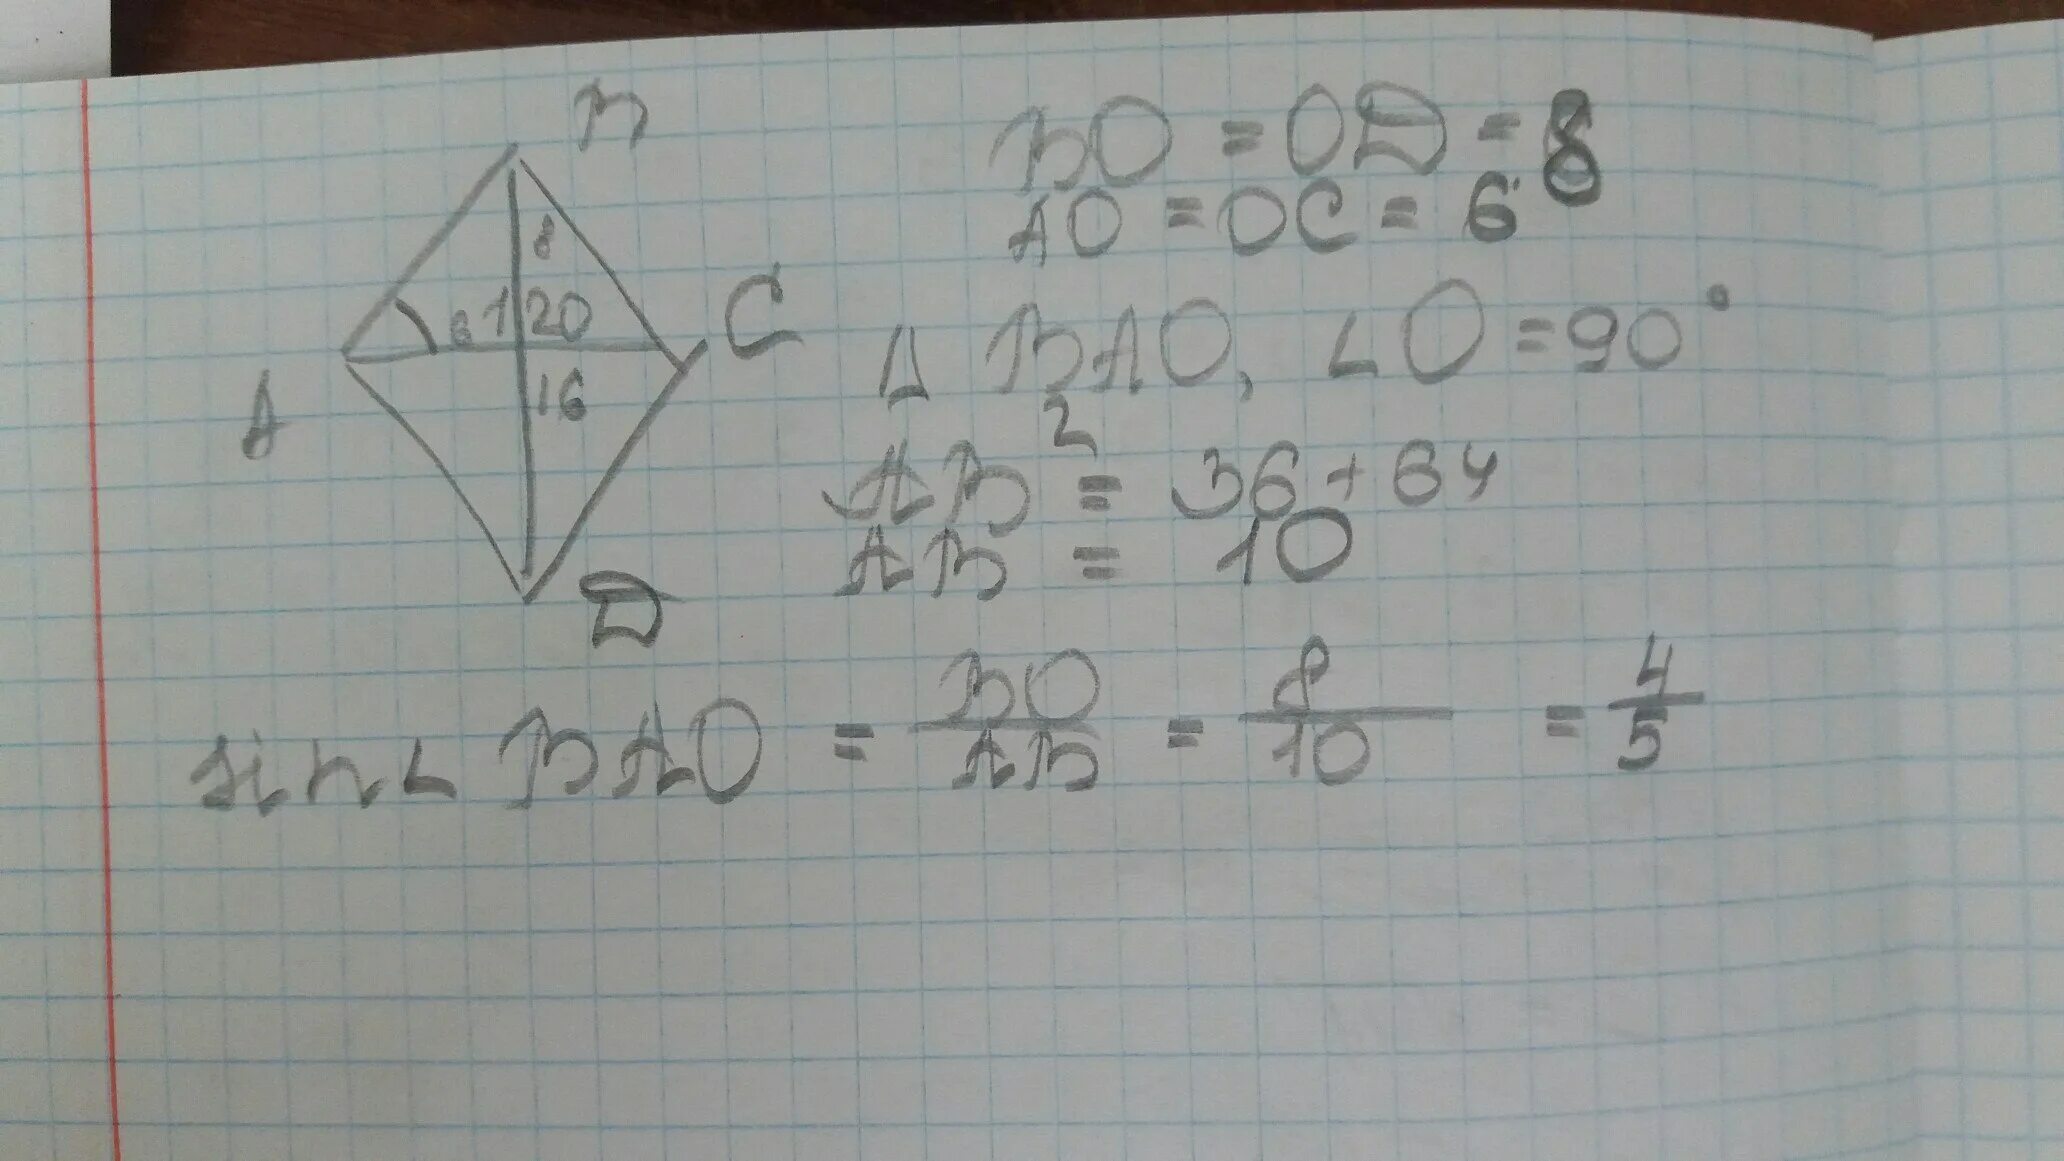 B
8
6 120
16
A
C
D
BO = OD = 8
AO = OC = 6
Δ BAO, ∠O = 90°
AB² = 36 + 64
AB = 10
sin∠ BAO = BO/AB = 8/10 = 4/5